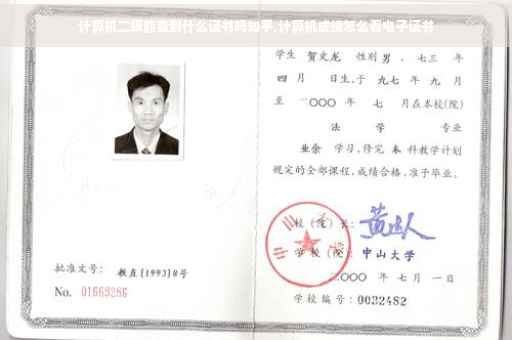 计算机二级能查到什么证书吗知乎,计算机成绩怎么看电子证书
学生 贺文龙 性别 男，七三 年
四 月 日生，于 九七 年 九 月
至 二〇〇〇 年 七 月在本校(院)
法 学 专业
业余 学习，修完 本 科教学计划
规定的全部课程，成绩合格，准予毕业。
校（院）长：
学校（院）：中山大学
二〇〇〇 年 七 月 一 日
学校编号：0032482
批准文号：教直[1993]8号
No. 01663286